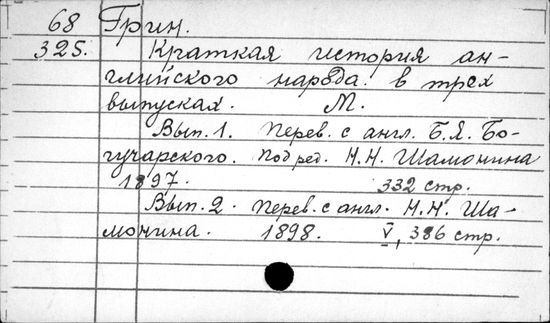 68 Грин.
325. Краткая история ан-
глийского народа. в трех
выпусках. М.
Вып. 1. Перев. с англ. Б.Я. Бо-
гучарского. Под ред. Н.Н. Шамонина
1897. 332 стр.
Вып. 2. Перев. с англ. Н.Н. Ша-
монина. 1898. V, 386 стр.